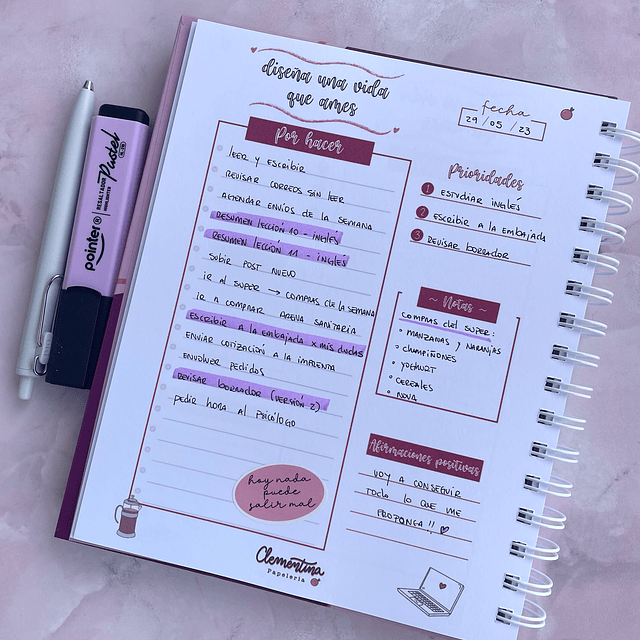 diseña una vida
que ames
fecha
29 / 05 / 23
Por hacer
LEER Y ESCRIBIR
REVISAR CORREOS SIN LEER
AGENDAR ENVÍOS DE LA SEMANA
RESUMEN LECCIÓN 10 - INGLÉS
RESUMEN LECCIÓN 11 - INGLÉS
SUBIR POST NUEVO
IR AL SUPER → COMPRAS DE LA SEMANA
IR A COMPRAR ARENA SANITARIA
ESCRIBIR A LA EMBAJADA X MIS DUDAS
ENVIAR COTIZACIÓN A LA IMPRENTA
ENVOLVER PEDIDOS
REVISAR BORRADOR (VERSIÓN 2)
PEDIR HORA AL PSICÓLOGO
hoy nada
puede
salir mal
Prioridades
1 ESTUDIAR INGLÉS
2 ESCRIBIR A LA EMBAJADA
3 REVISAR BORRADOR
~ Notas ~
COMPRAS DEL SUPER:
• MANZANAS Y NARANJAS
• CHAMPIÑONES
• YOGHURT
• CEREALES
Afirmaciones positivas
VOY A CONSEGUIR
TODO LO QUE ME
PROPONGA!!
Clementina
Papelería
pointer®
RESALTADOR
HIGHLIGHTER
Pastel